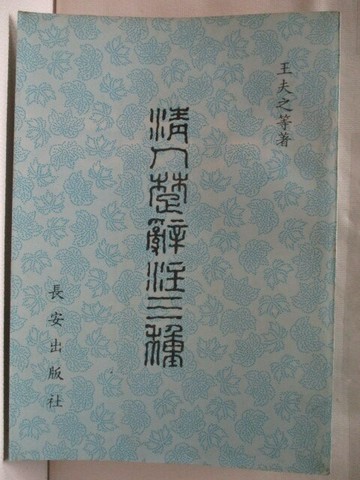 王夫之等著
清人楚辭注三種
長安出版社